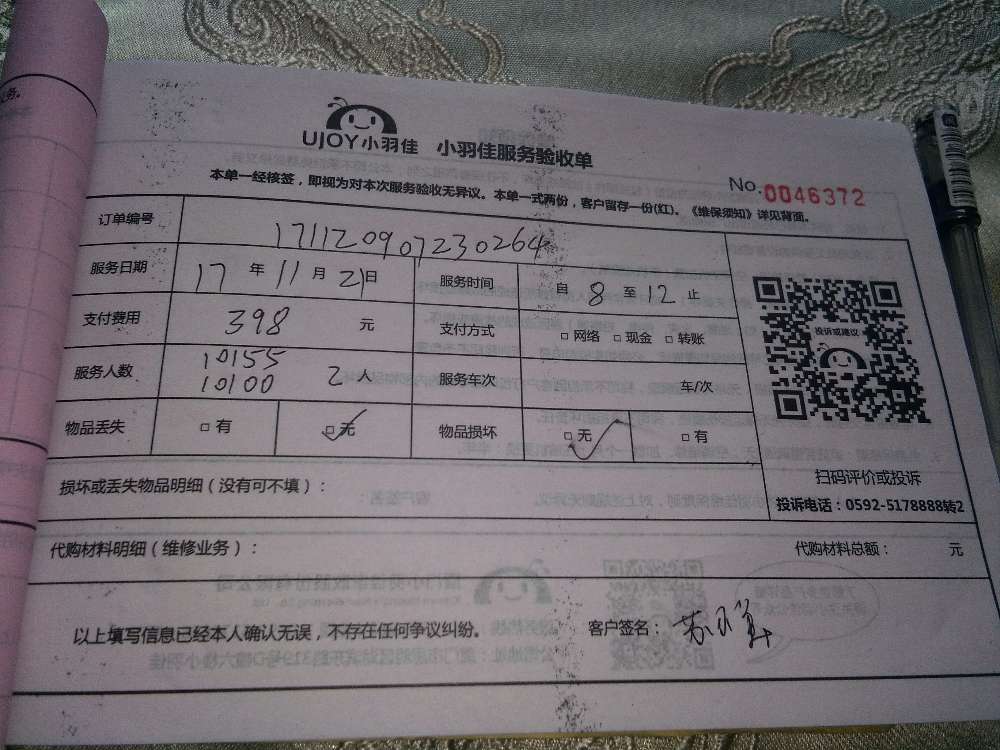 务。
UJOY小羽佳 小羽佳服务验收单
No.0046372
本单一经核签，即视为对本次服务验收无异议。本单一式两份，客户留存一份(红)。《维保须知》详见背面。
订单编号 171120907230264
服务日期 17年11月21日 服务时间 自8至12止
支付费用 398 元 支付方式 □网络 □现金 □转账
服务人数 10155 10100 2人 服务车次 车/次
物品丢失 □有 □无 物品损坏 □无 □有
投诉或建议
扫码评价或投诉
投诉电话：0592-5178888转2
损坏或丢失物品明细（没有可不填）：
代购材料明细（维修业务）： 代购材料总额： 元
以上填写信息已经本人确认无误，不存在任何争议纠纷。 客户签名：